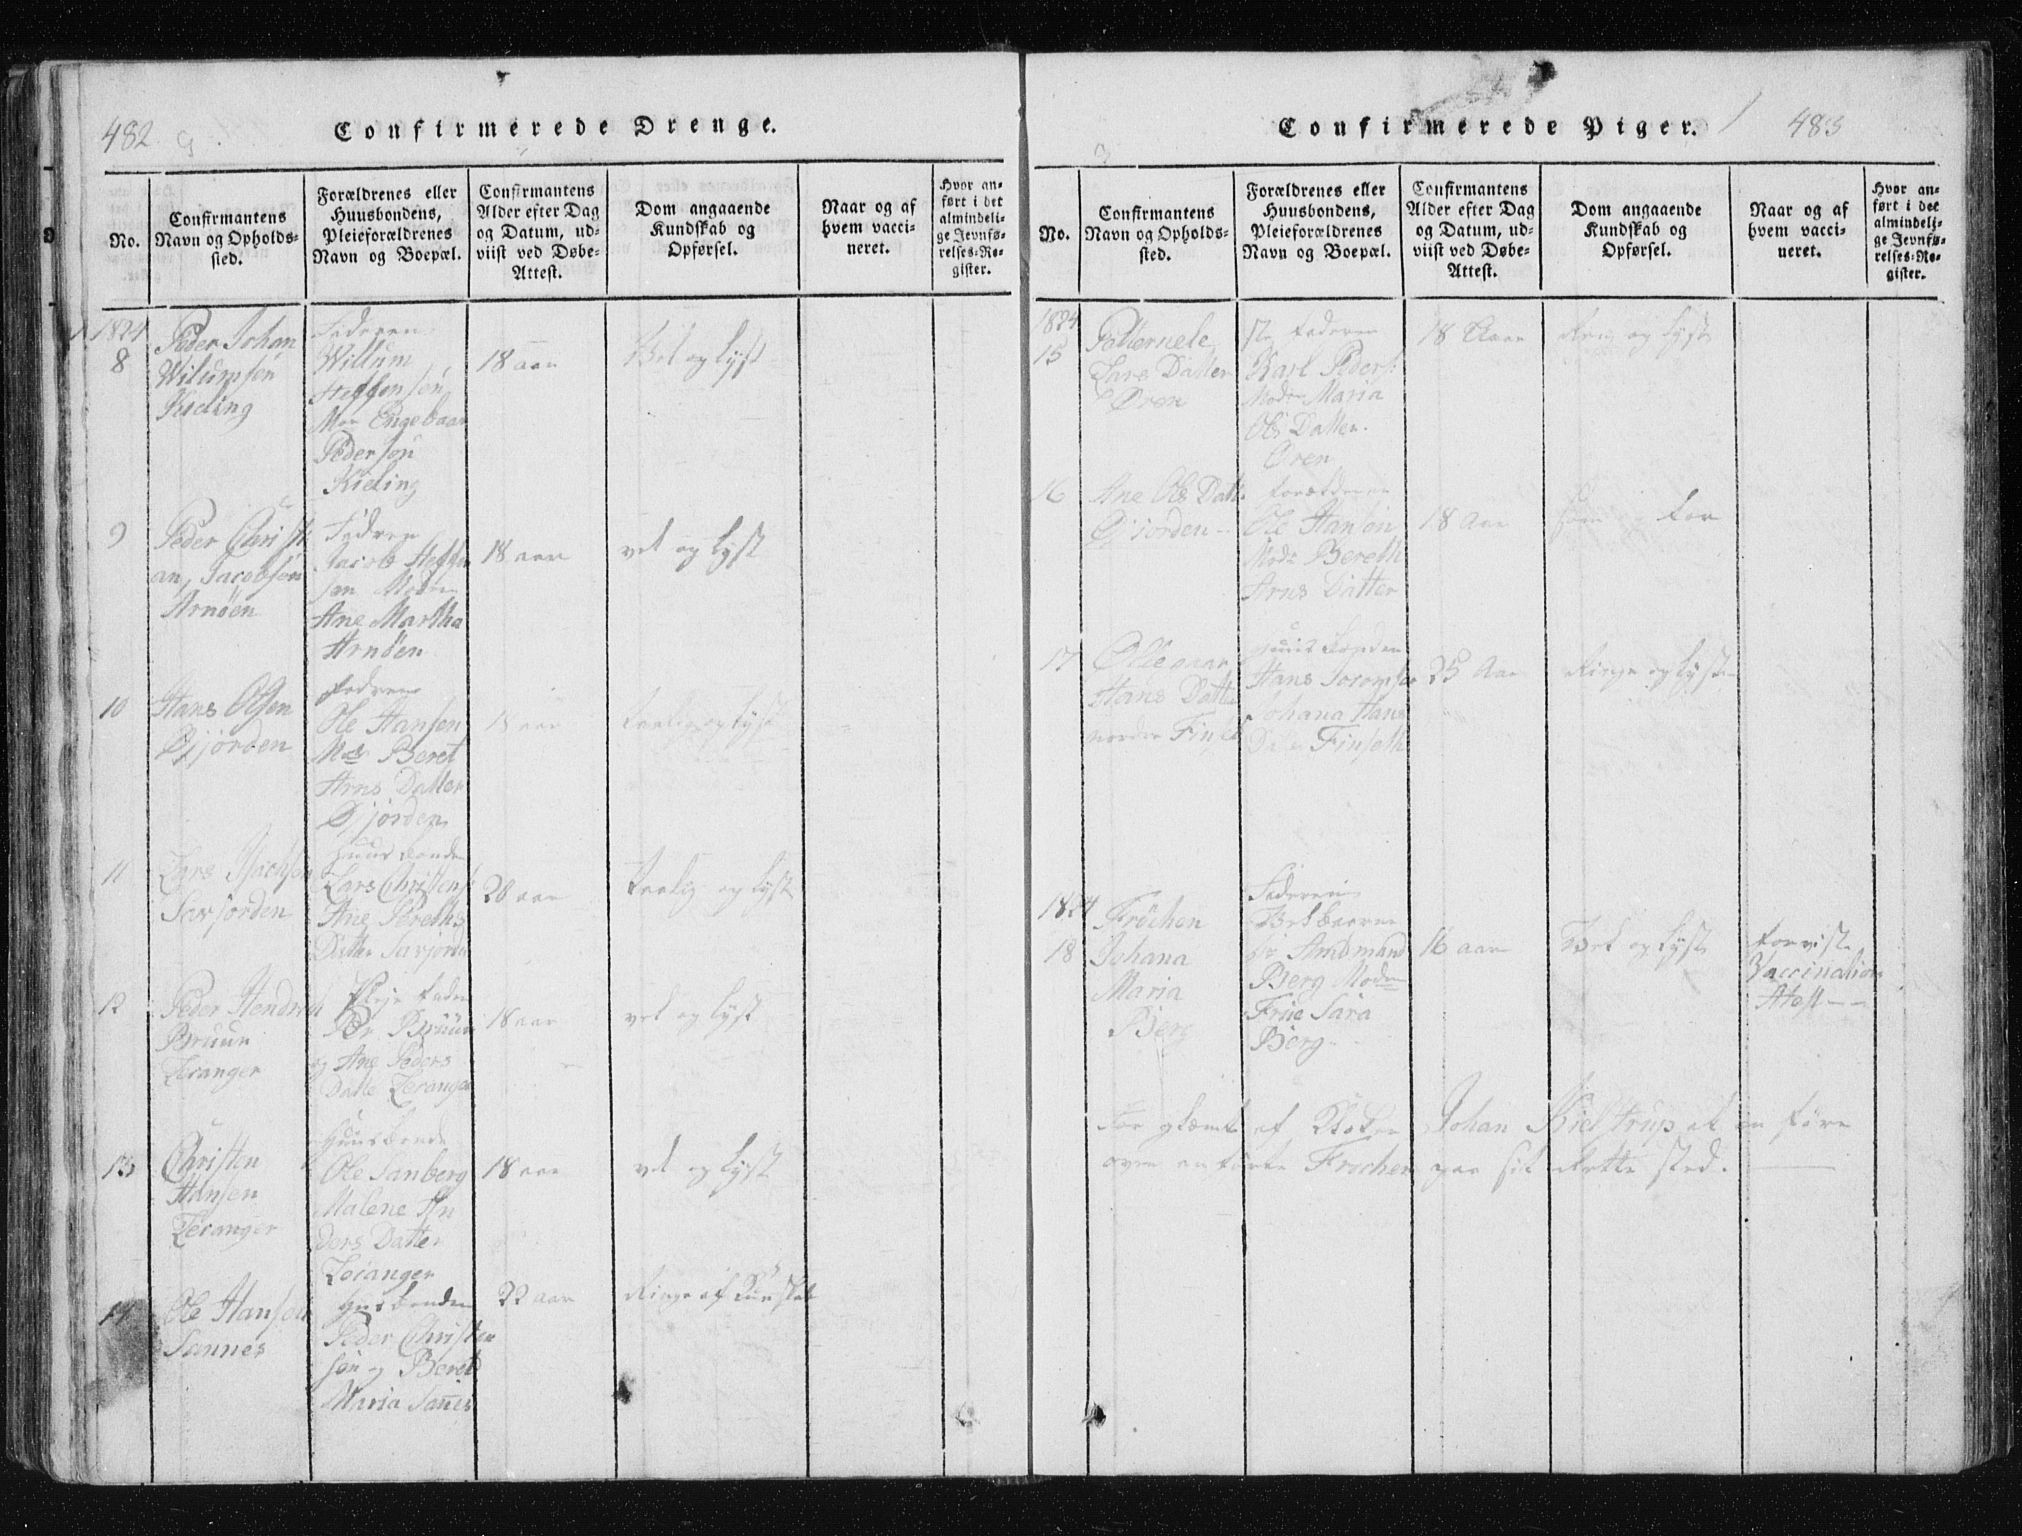 482
Confirmerede Drenge.
No.
Confirmantens
Navn og Opholds-
sted.
Forældrenes eller
Huusbondens,
Pleieforældrenes
Navn og Boepæl.
Confirmantens
Alder efter Dag
og Datum, ud-
viist ved Døbe-
Attest.
Dom angaaende
Kundskab og
Opførsel.
Naar og af
hvem vacci-
neret.
Hvor an-
ført i det
almindeli-
ge Jevnfø-
relses-Re-
gister.
1824
8
Peder Johan
Wilumsen
Kieling
Faderen
Willum
Steffensen
Mor Engebaar
Peder
Kieling
18 aar
Vel og Lyst
9
Peder Christi
an, Jacobsen
Arnøen
Jacob Steffen
sen Moder
Ane Martha
Arnøen
18 aar
vel og Lyst
10
Hans Olsen
Øjjorden
Ole Hansen
Mod Beret
Arns Datter
Øjjorden
aar
og Lyst
11
Lars
Sarjorden
Huusbonde
Lars Christens
Ane
Datter Sarjorde
20 aar
og Lyst
12
Peder Hendrich
Bruun
Leranger
Pleje fader
Bruun
og Ane Peders
Datte Leranger
18 aar
vel og Lyst
13
Christen
Hansen
Leranger
Huusbonde
Ole Sanberg
Malene An
ders Datter
Leranger
18 aar
vel og Lyst
14
Ole Hansen
Sannes
Husbonden
Peder Christen
sen og Beret
Maria Sanes
22 aar
Ringe af Kunskab
483
Confirmerede Piger.
No.
Confirmantens
Navn og Opholds-
sted.
Forældrenes eller
Huusbondens,
Pleieforældrenes
Navn og Boepæl.
Confirmantens
Alder efter Dag
og Datum, ud-
viist ved Døbe-
Attest.
Dom angaaende
Kundskab og
Opførsel.
Naar og af
hvem vacci-
neret.
Hvor an-
ført i det
almindeli-
ge Jevnfø-
relses-Re-
gister.
1824
15
Pallernele
Lars Datter
Øren
faderen
Karl Peders:
Moder Maria
Ols Datter
Øren
18 Aar
og Lyst
16
Ane Ols Datt
Øjjorden
forældrene
Ole Hansen
Modr Bereth
Arns Datter
18 Aar
som for
17
Ollegaar
Hans Datte
nordre Finset
Huusbonden
Hans
Johana Hans
Date Finseth
25 Aar
Ringe og Lyst
1824
18
Frøchen
Johana
Maria
Berg
Faderen
Velbaarne
hr Amdmand
Berg Moder
Frue Sara
Berg
16 aar
Vel og Lyst
forviste
Vaccination
Atest
For glemt af Klokker Johan Kielstrup at an føre
oven anførte Frøchen paa sit Rette sted.